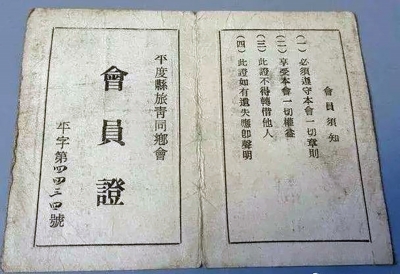 會員須知
(一) 必須遵守本會一切章則
(二) 享受本會一切權益
(三) 此證不得轉借他人
(四) 此證如有遺失應即聲明
平度縣旅青同鄉會
會員證
平字第四四三四號